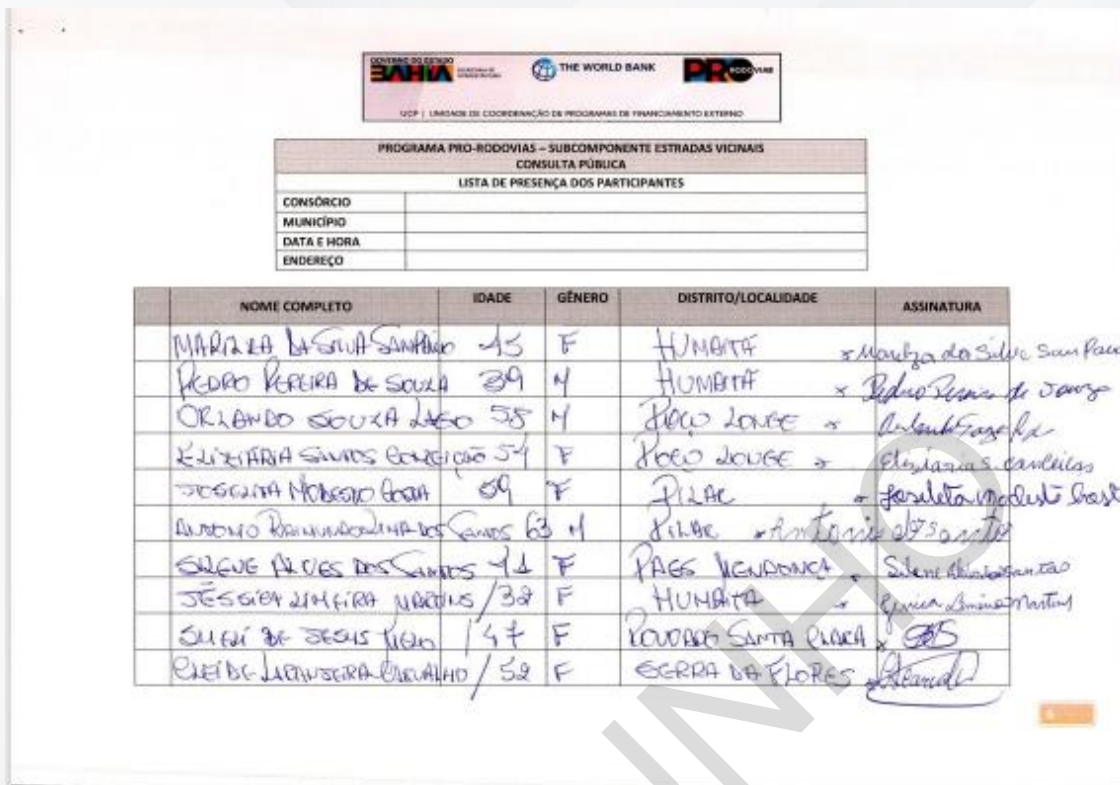 GOVERNO DO ESTADO
BAHIA SECRETARIA DE INFRAESTRUTURA THE WORLD BANK PRO RODOVIAS
UCP | UNIDADE DE COORDENAÇÃO DE PROGRAMAS DE FINANCIAMENTO EXTERNO
PROGRAMA PRO-RODOVIAS – SUBCOMPONENTE ESTRADAS VICINAIS
CONSULTA PÚBLICA
LISTA DE PRESENÇA DOS PARTICIPANTES
CONSÓRCIO
MUNICÍPIO
DATA E HORA
ENDEREÇO
NOME COMPLETO IDADE GÊNERO DISTRITO/LOCALIDADE ASSINATURA
DA SILVA SAMPAIO F HUMAITÁ x da Silva Sam Paio
PEDRO PEREIRA DE SOUZA 39 M HUMAITÁ x Pedro Pereira de Souza
ORLANDO SOUZA LAGO 58 M POÇO LONGE x
SANTOS CONCEIÇÃO 54 F POÇO LONGE x
MODESTO COSTA 59 F PILAR x modesto Cost
ANTONIO RAIMUNDO LIMA DOS SANTOS 63 M PILAR x Antonio dos Santos
ALVES DOS SANTOS F PAES MENDONÇA x
JÉSSICA LIMEIRA MARTINS / 32 F HUMAITÁ x Martins
SUELÍ DE JESUS / 47 F POVOADO SANTA CLARA x
CLEIDE LARANJEIRA CARVALHO / 52 F SERRA DA FLORES x
INHO